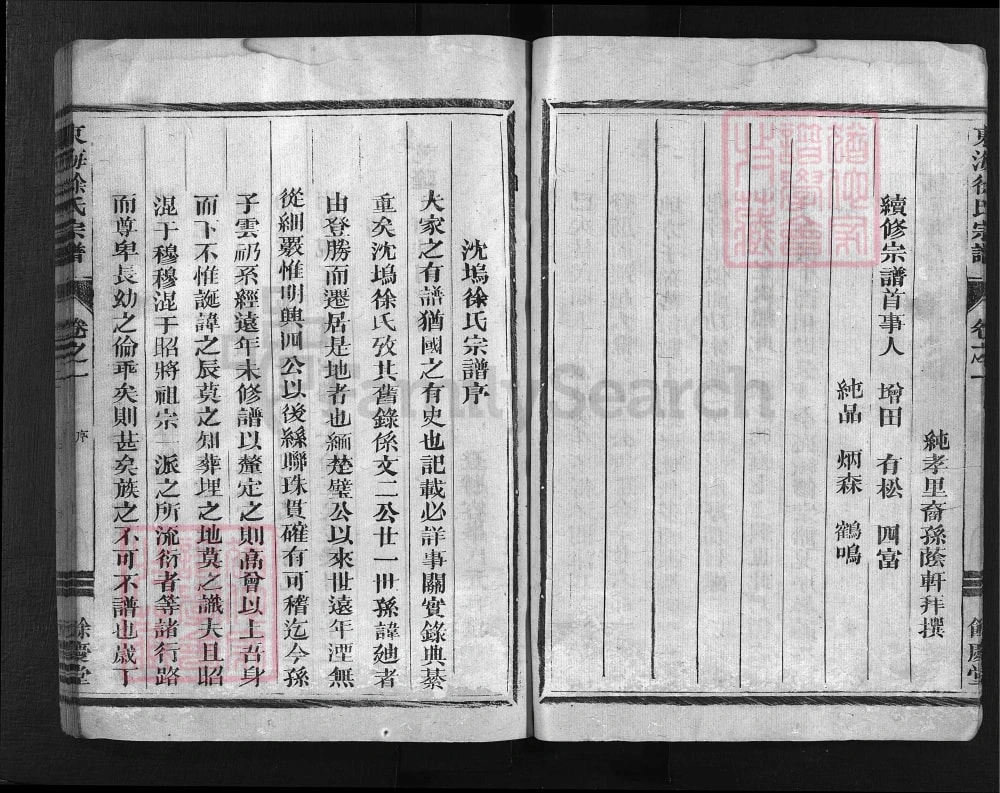 純孝里裔孫蔭軒拜撰
續修宗譜首事人 增田 有松 四富
純品 炳森 鶴鳴
東海徐氏宗譜 卷之一 餘慶堂
沈塢徐氏宗譜序
大家之有譜猶國之有史也記載必詳事關實錄典綦
重矣沈塢徐氏攷其舊錄係文二公廿一世孫諱廸者
由登勝而遷居是地者也緬楚璧公以來世遠年湮無
從細覈惟明興四公以後緜聯珠貫確有可稽迄今孫
子雲礽系經遠年未修譜以釐定之則高曾以上吾身
而下不惟誕諱之辰莫之知葬埋之地莫之識夫且昭
混于穆穆混于昭將祖宗一派之所流衍者等諸行路
而尊卑長幼之倫乖矣則甚矣族之不可不譜也歲丁
東海徐氏宗譜 卷之一 序 餘慶堂
FamilySearch